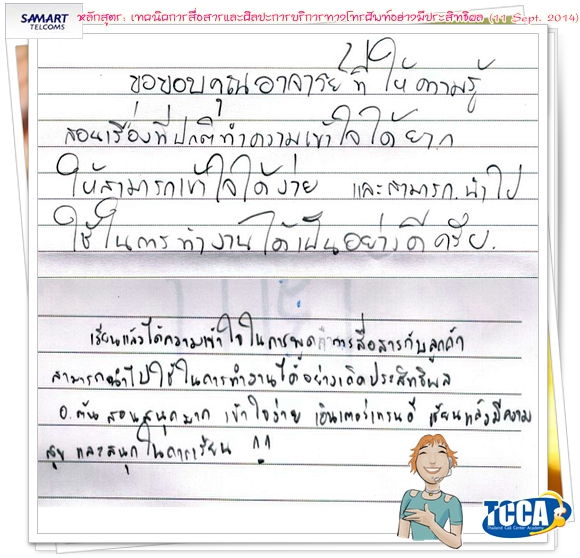 SAMART
TELCOMS
หลักสูตร: เทคนิคการสื่อสารและศิลปะการบริการทางโทรศัพท์อย่างมีประสิทธิผล (11 Sept. 2014)
ขอขอบคุณอาจารย์ที่ให้ความรู้
สอนเรื่องที่ปกติทำความเข้าใจได้ยาก
ให้สามารถเข้าใจได้ง่าย และสามารถนำไป
ใช้ในการทำงานได้เป็นอย่างดีครับ.
เรียนแล้วได้ความเข้าใจในการพูด การสื่อสารกับลูกค้า
สามารถนำไปใช้ในการทำงานได้อย่างเกิดประสิทธิผล
อ.ต้น สอนสนุกมาก เข้าใจง่าย เอ็นเตอร์เทรนดี เรียนแล้วมีความ
สุข และสนุกในการเรียน !!
TCCA
Thailand Call Center Academy